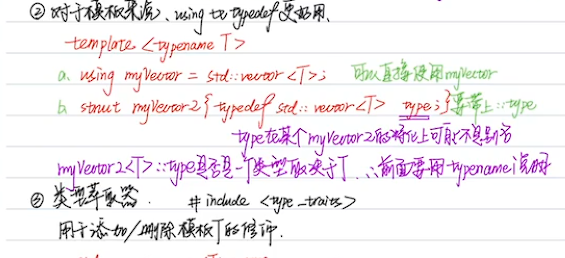 ② 对于模板来说、using 比 typedef 更好用、
template <typename T>
a. using myVector = std::vector<T>; 可以直接使用myVector
b. struct myVector2{typedef std::vector<T> type;} 要带上::type
type在某个myVector2的特化上可能不是别名
myVector2<T>::type是否是一个类型取决于T ∴前面要用typename说明
③ 类型萃取器. #include <type_traits>
用于添加/删除模板T的修饰.